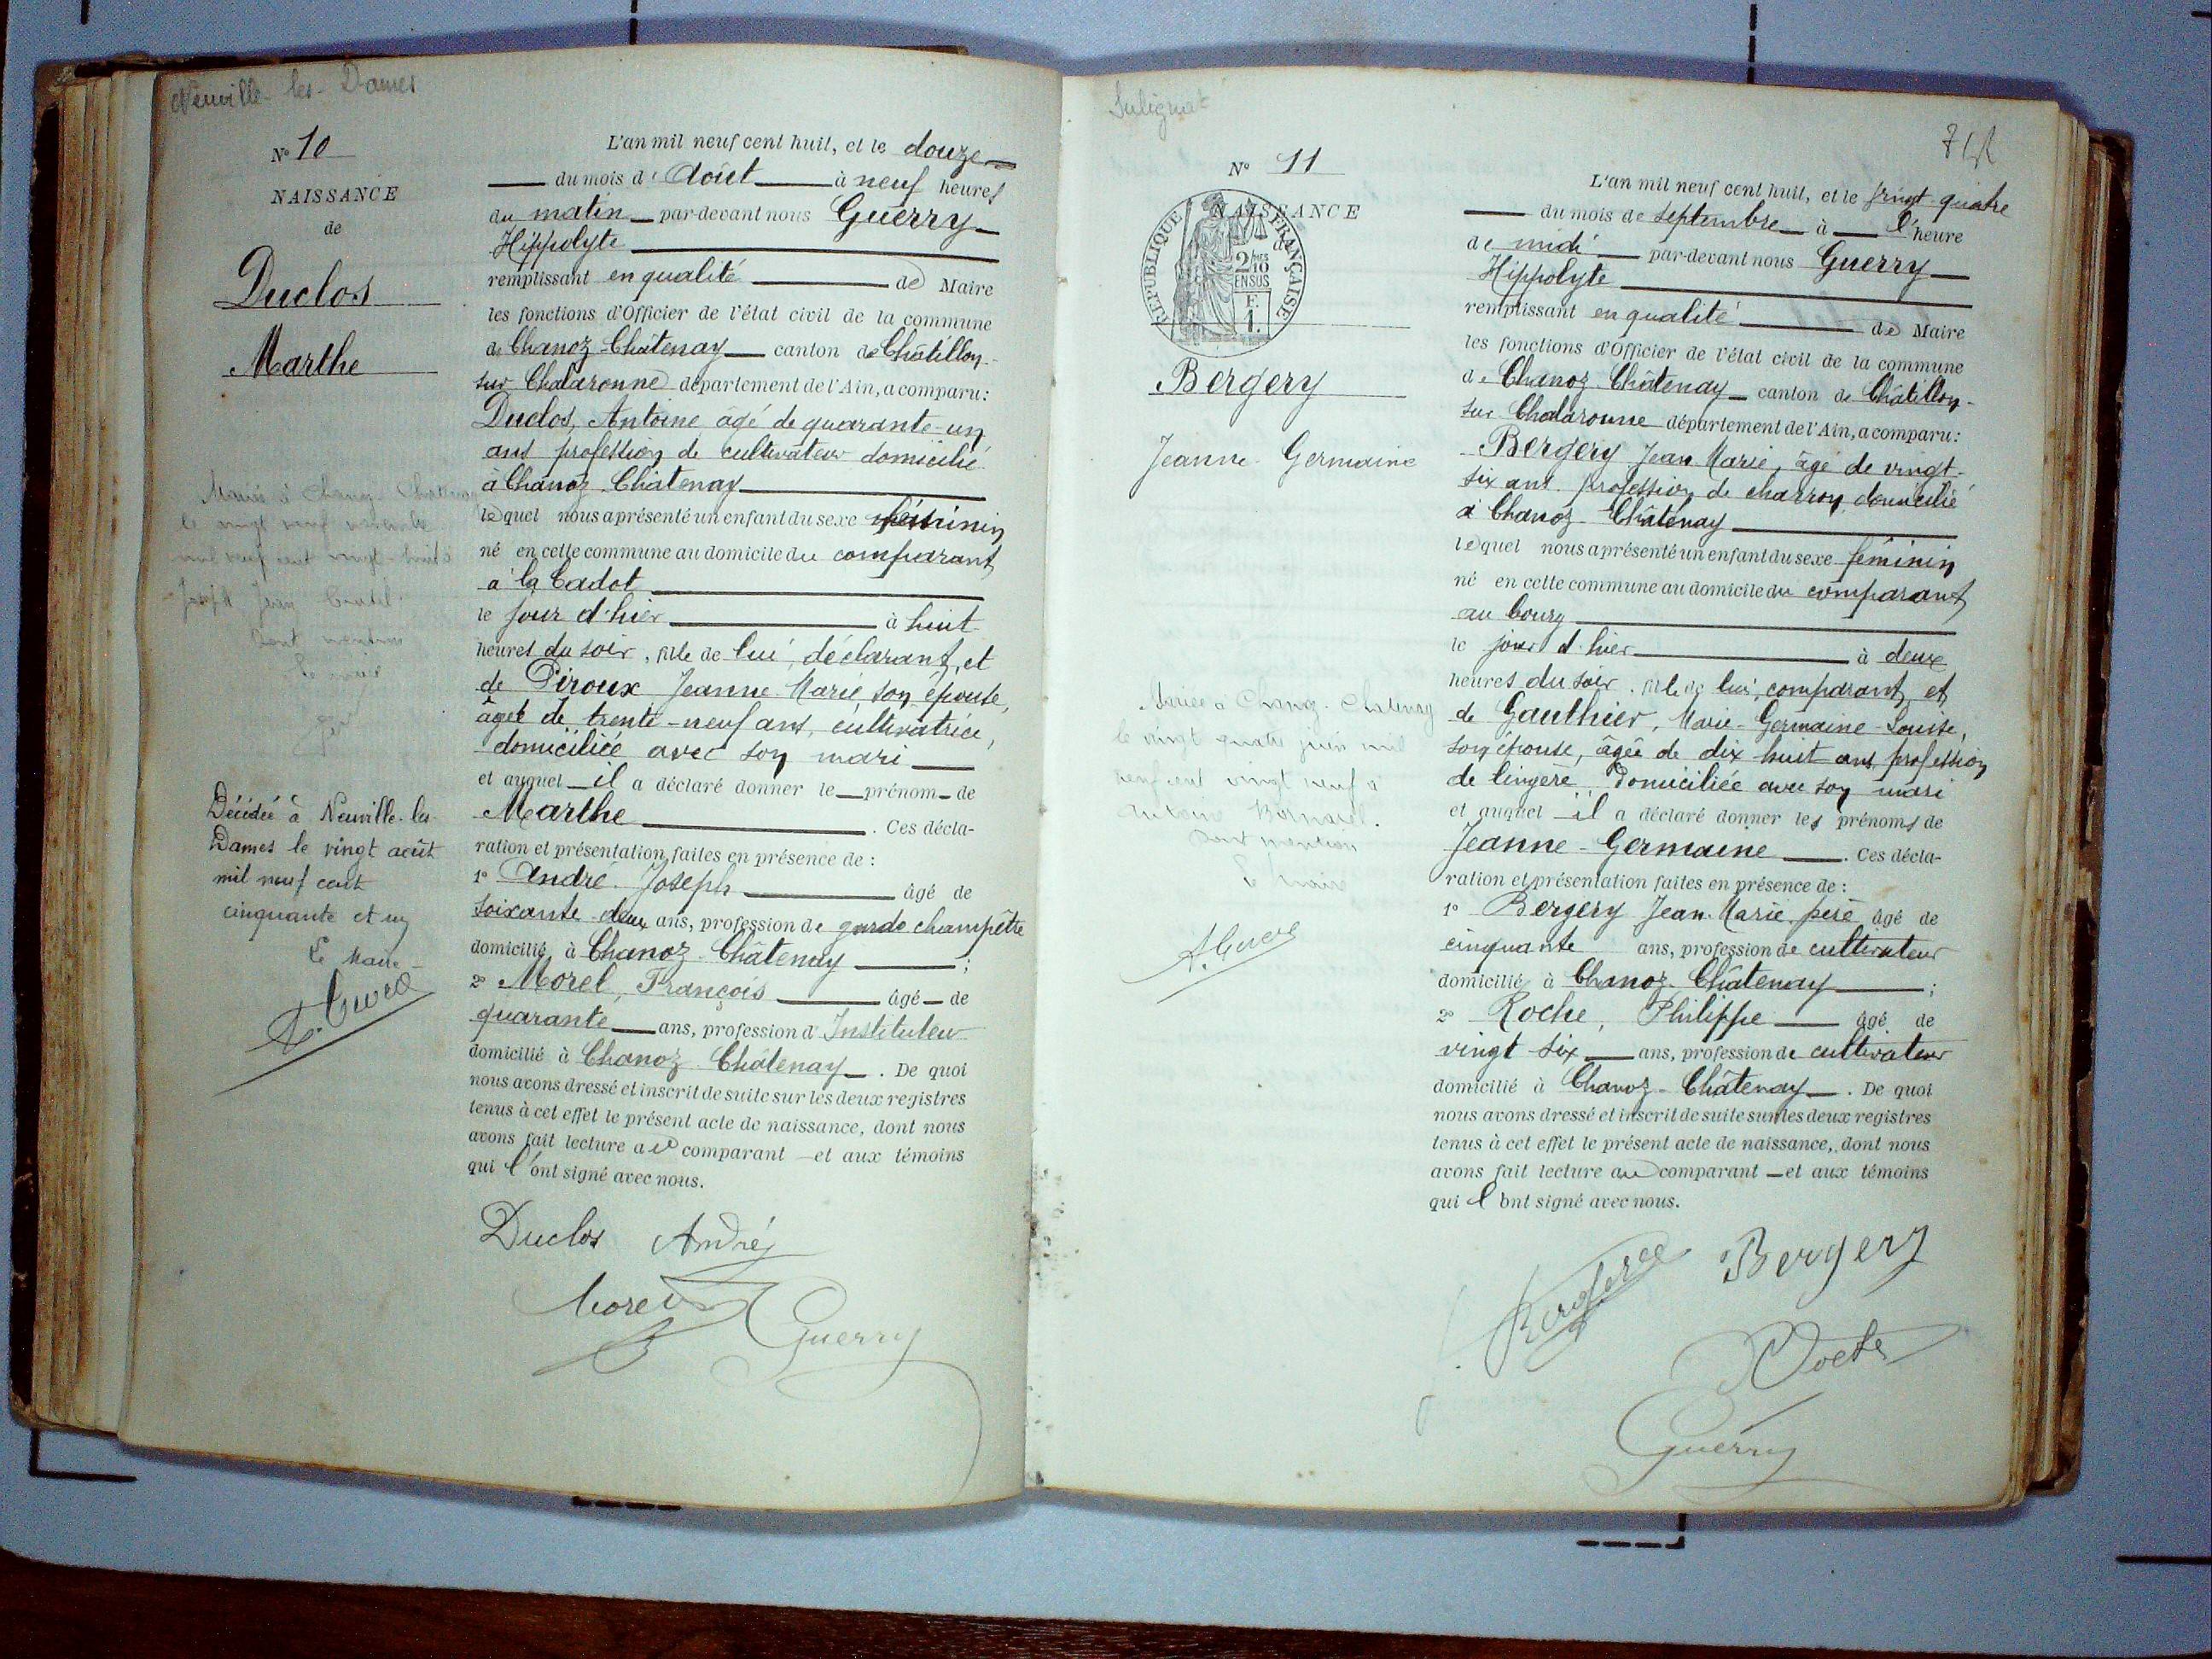 Neuville-les-Dames
N° 10
NAISSANCE
de
Duclos
Marthe
Mariée à Chanoz-Chatenay
le vingt neuf
mil neuf cent vingt-huit à
Joseph Jean
Dont mention
Le maire
Décédée à Neuville-les-
Dames le vingt août
mil neuf cent
cinquante et un
Le Maire
L'an mil neuf cent huit, et le douze
du mois d'Août à neuf heures
du matin par-devant nous Guerry
Hippolyte
remplissant en qualité de Maire
les fonctions d'Officier de l'état civil de la commune
de Chanoz-Châtenay canton de Châtillon-
sur Chalaronne département de l'Ain, a comparu:
Duclos, Antoine âgé de quarante-un
ans profession de cultivateur domicilié
à Chanoz-Châtenay
lequel nous a présenté un enfant du sexe féminin
né en cette commune au domicile du comparant
à la Cadot
le jour d'hier à huit
heures du soir, fille de lui, déclarant, et
de Piroux Jeanne-Marie, son épouse,
âgée de trente-neuf ans, cultivatrice,
domiciliée avec son mari
et auquel il a déclaré donner le prénom de
Marthe . Ces décla-
ration et présentation faites en présence de :
1° André Joseph âgé de
soixante-deux ans, profession de garde champêtre
domicilié à Chanoz-Châtenay ;
2° Morel, François âgé de
quarante ans, profession d'Instituteur
domicilié à Chanoz-Châtenay . De quoi
nous avons dressé et inscrit de suite sur les deux registres
tenus à cet effet le présent acte de naissance, dont nous
avons fait lecture au comparant et aux témoins
qui l'ont signé avec nous.
Duclos André
Morel
Guerry
Sulignat
N° 11
NAISSANCE
de
RÉPUBLIQUE FRANÇAISE
2/10
EN SUS
F.
1.
Bergery
Jeanne-Germaine
Mariée à Chanoz-Chatenay
le vingt quatre juin mil
neuf cent vingt neuf à
Antoine
Dont mention
Le maire
L'an mil neuf cent huit, et le vingt-quatre
du mois de septembre à l'heure
de midi par-devant nous Guerry
Hippolyte
remplissant en qualité de Maire
les fonctions d'Officier de l'état civil de la commune
de Chanoz-Châtenay canton de Châtillon-
sur Chalaronne département de l'Ain, a comparu:
Bergery Jean Marie, âgé de vingt-
six ans profession de charron, domicilié
à Chanoz-Châtenay
lequel nous a présenté un enfant du sexe féminin
né en cette commune au domicile du comparant
au bourg
le jour d'hier à deux
heures du soir, fille de lui, comparant et
de Gauthier, Marie-Germaine-Louise,
son épouse, âgée de dix-huit ans profession
de lingère, domiciliée avec son mari
et auquel il a déclaré donner les prénoms de
Jeanne-Germaine . Ces décla-
ration et présentation faites en présence de :
1° Bergery Jean-Marie, père âgé de
cinquante ans, profession de cultivateur
domicilié à Chanoz-Châtenay ;
2° Roche, Philippe âgé de
vingt-six ans, profession de cultivateur
domicilié à Chanoz-Châtenay . De quoi
nous avons dressé et inscrit de suite sur les deux registres
tenus à cet effet le présent acte de naissance, dont nous
avons fait lecture au comparant et aux témoins
qui l'ont signé avec nous.
Bergery
Guerry